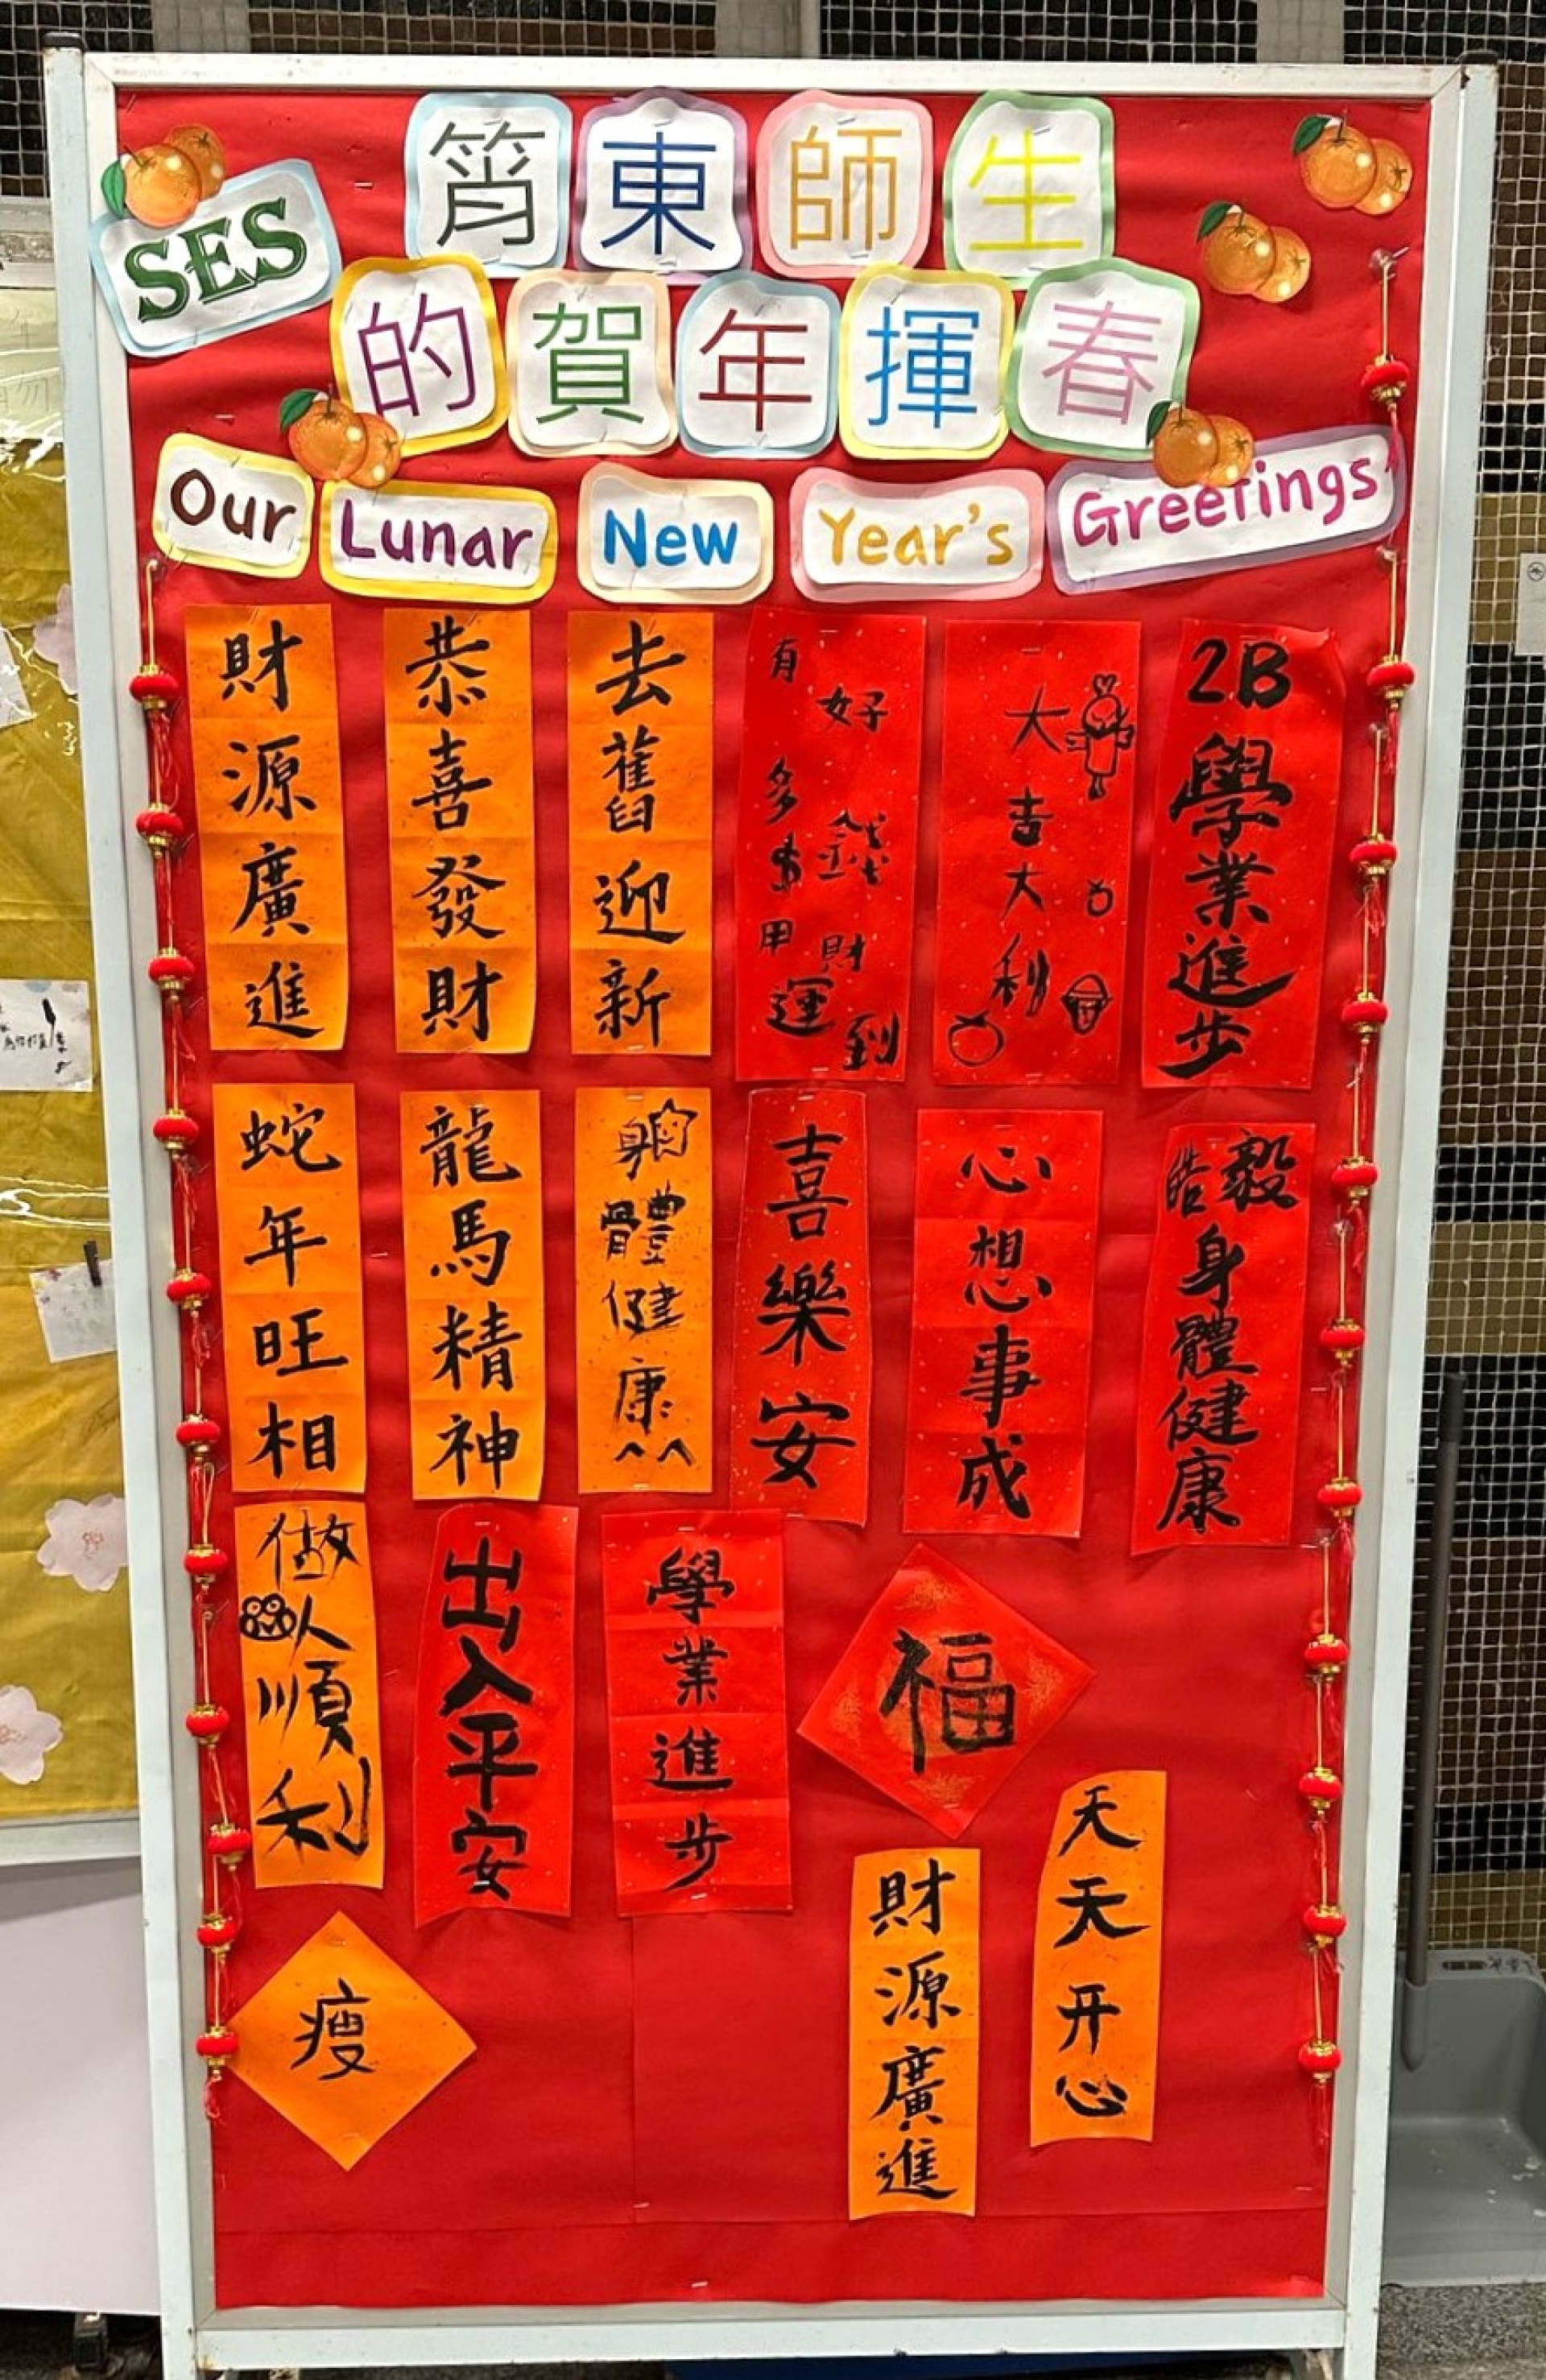 SES
筲東師生
的賀年揮春
Our Lunar New Year's Greetings
財源廣進
恭喜發財
去舊迎新
有好多$錢用
財運到
大吉大利
2B學業進步
蛇年旺相
龍馬精神
身體健康^^
喜樂安
心想事成
皓毅身體健康
做人順利
出入平安
學業進步
福
天天开心
財源廣進
瘦